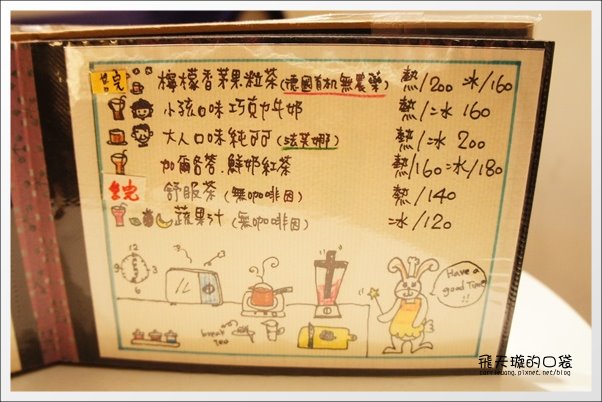 售完 檸檬香茅果粒茶(德國有机無農藥) 熱/200 冰/160
小孩口味巧克力牛奶 熱/冰 160
大人口味純可可(法芙娜) 熱/冰 200
加爾各答.鮮奶紅茶 熱/160 冰/180
售完 舒服茶(無咖啡因) 熱/140
蔬果汁(無咖啡因) 冰/120
12
9
3
6
Have a
good Time!
bread
tea
飛天璇的口袋
carriewang.pixnet.net/blog